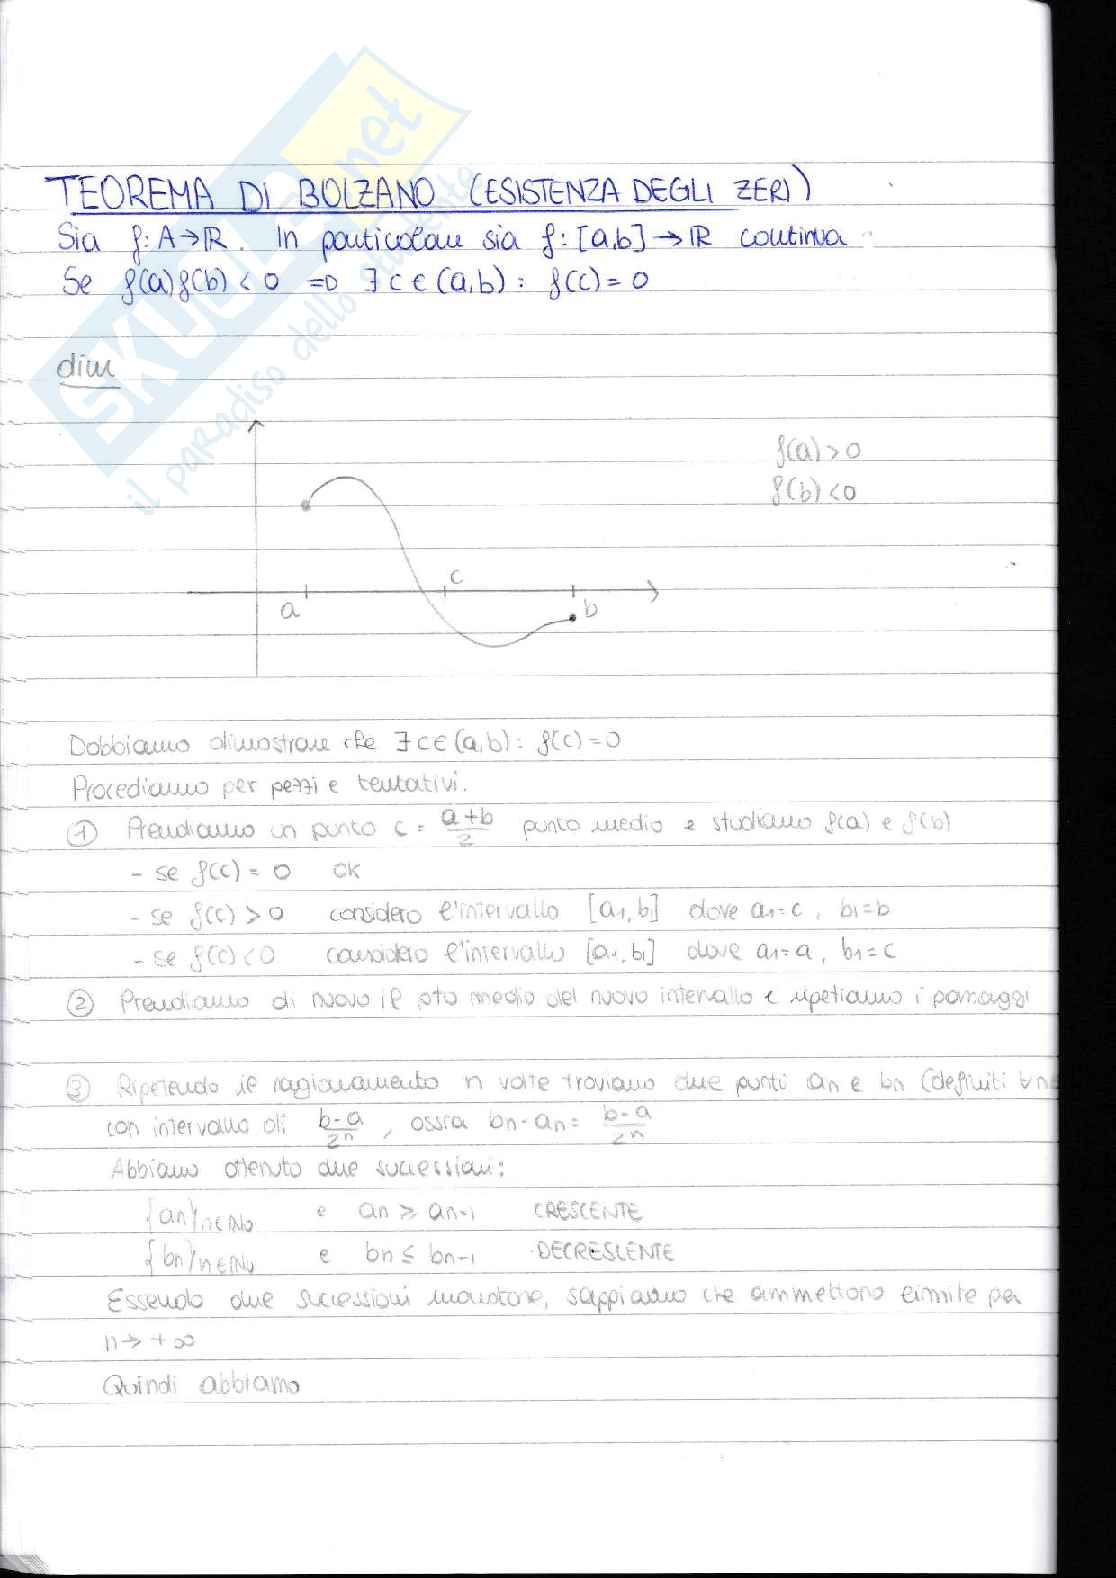 SKUOLA.net
il paradiso dello studente
TEOREMA DI BOLZANO (ESISTENZA DEGLI ZERI)
Sia f: A→ℝ. In particolare sia f: [a,b] → ℝ continua
Se f(a)f(b) < 0 => ∃ c ∈ (a,b) : f(c) = 0
dim
f(a) > 0
f(b) < 0
c
a
b
Dobbiamo dimostrare che ∃ c ∈ (a,b) : f(c) = 0
Procediamo per pezzi e tentativi.
① Prendiamo un punto c = (a+b)/2 punto medio e studiamo f(a) e f(b)
- se f(c) = 0 OK
- se f(c) > 0 considero l'intervallo [a₁, b] dove a₁ = c, b₁ = b
- se f(c) < 0 considero l'intervallo [a₁, b₁] dove a₁ = a, b₁ = c
② Prendiamo di nuovo il pto medio del nuovo intervallo e ripetiamo i passaggi
③ Ripetendo il ragionamento n volte troviamo due punti aₙ e bₙ (definiti ∀n∈
con intervallo di (b-a)/2ⁿ, ossia bₙ-aₙ = (b-a)/2ⁿ
Abbiamo ottenuto due successioni:
{aₙ}n∈ℕ₀ e aₙ ≥ aₙ₋₁ CRESCENTE
{bₙ}n∈ℕ₀ e bₙ ≤ bₙ₋₁ DECRESCENTE
Essendo due successioni monotone, sappiamo che ammettono limite per
n → +∞
Quindi abbiamo